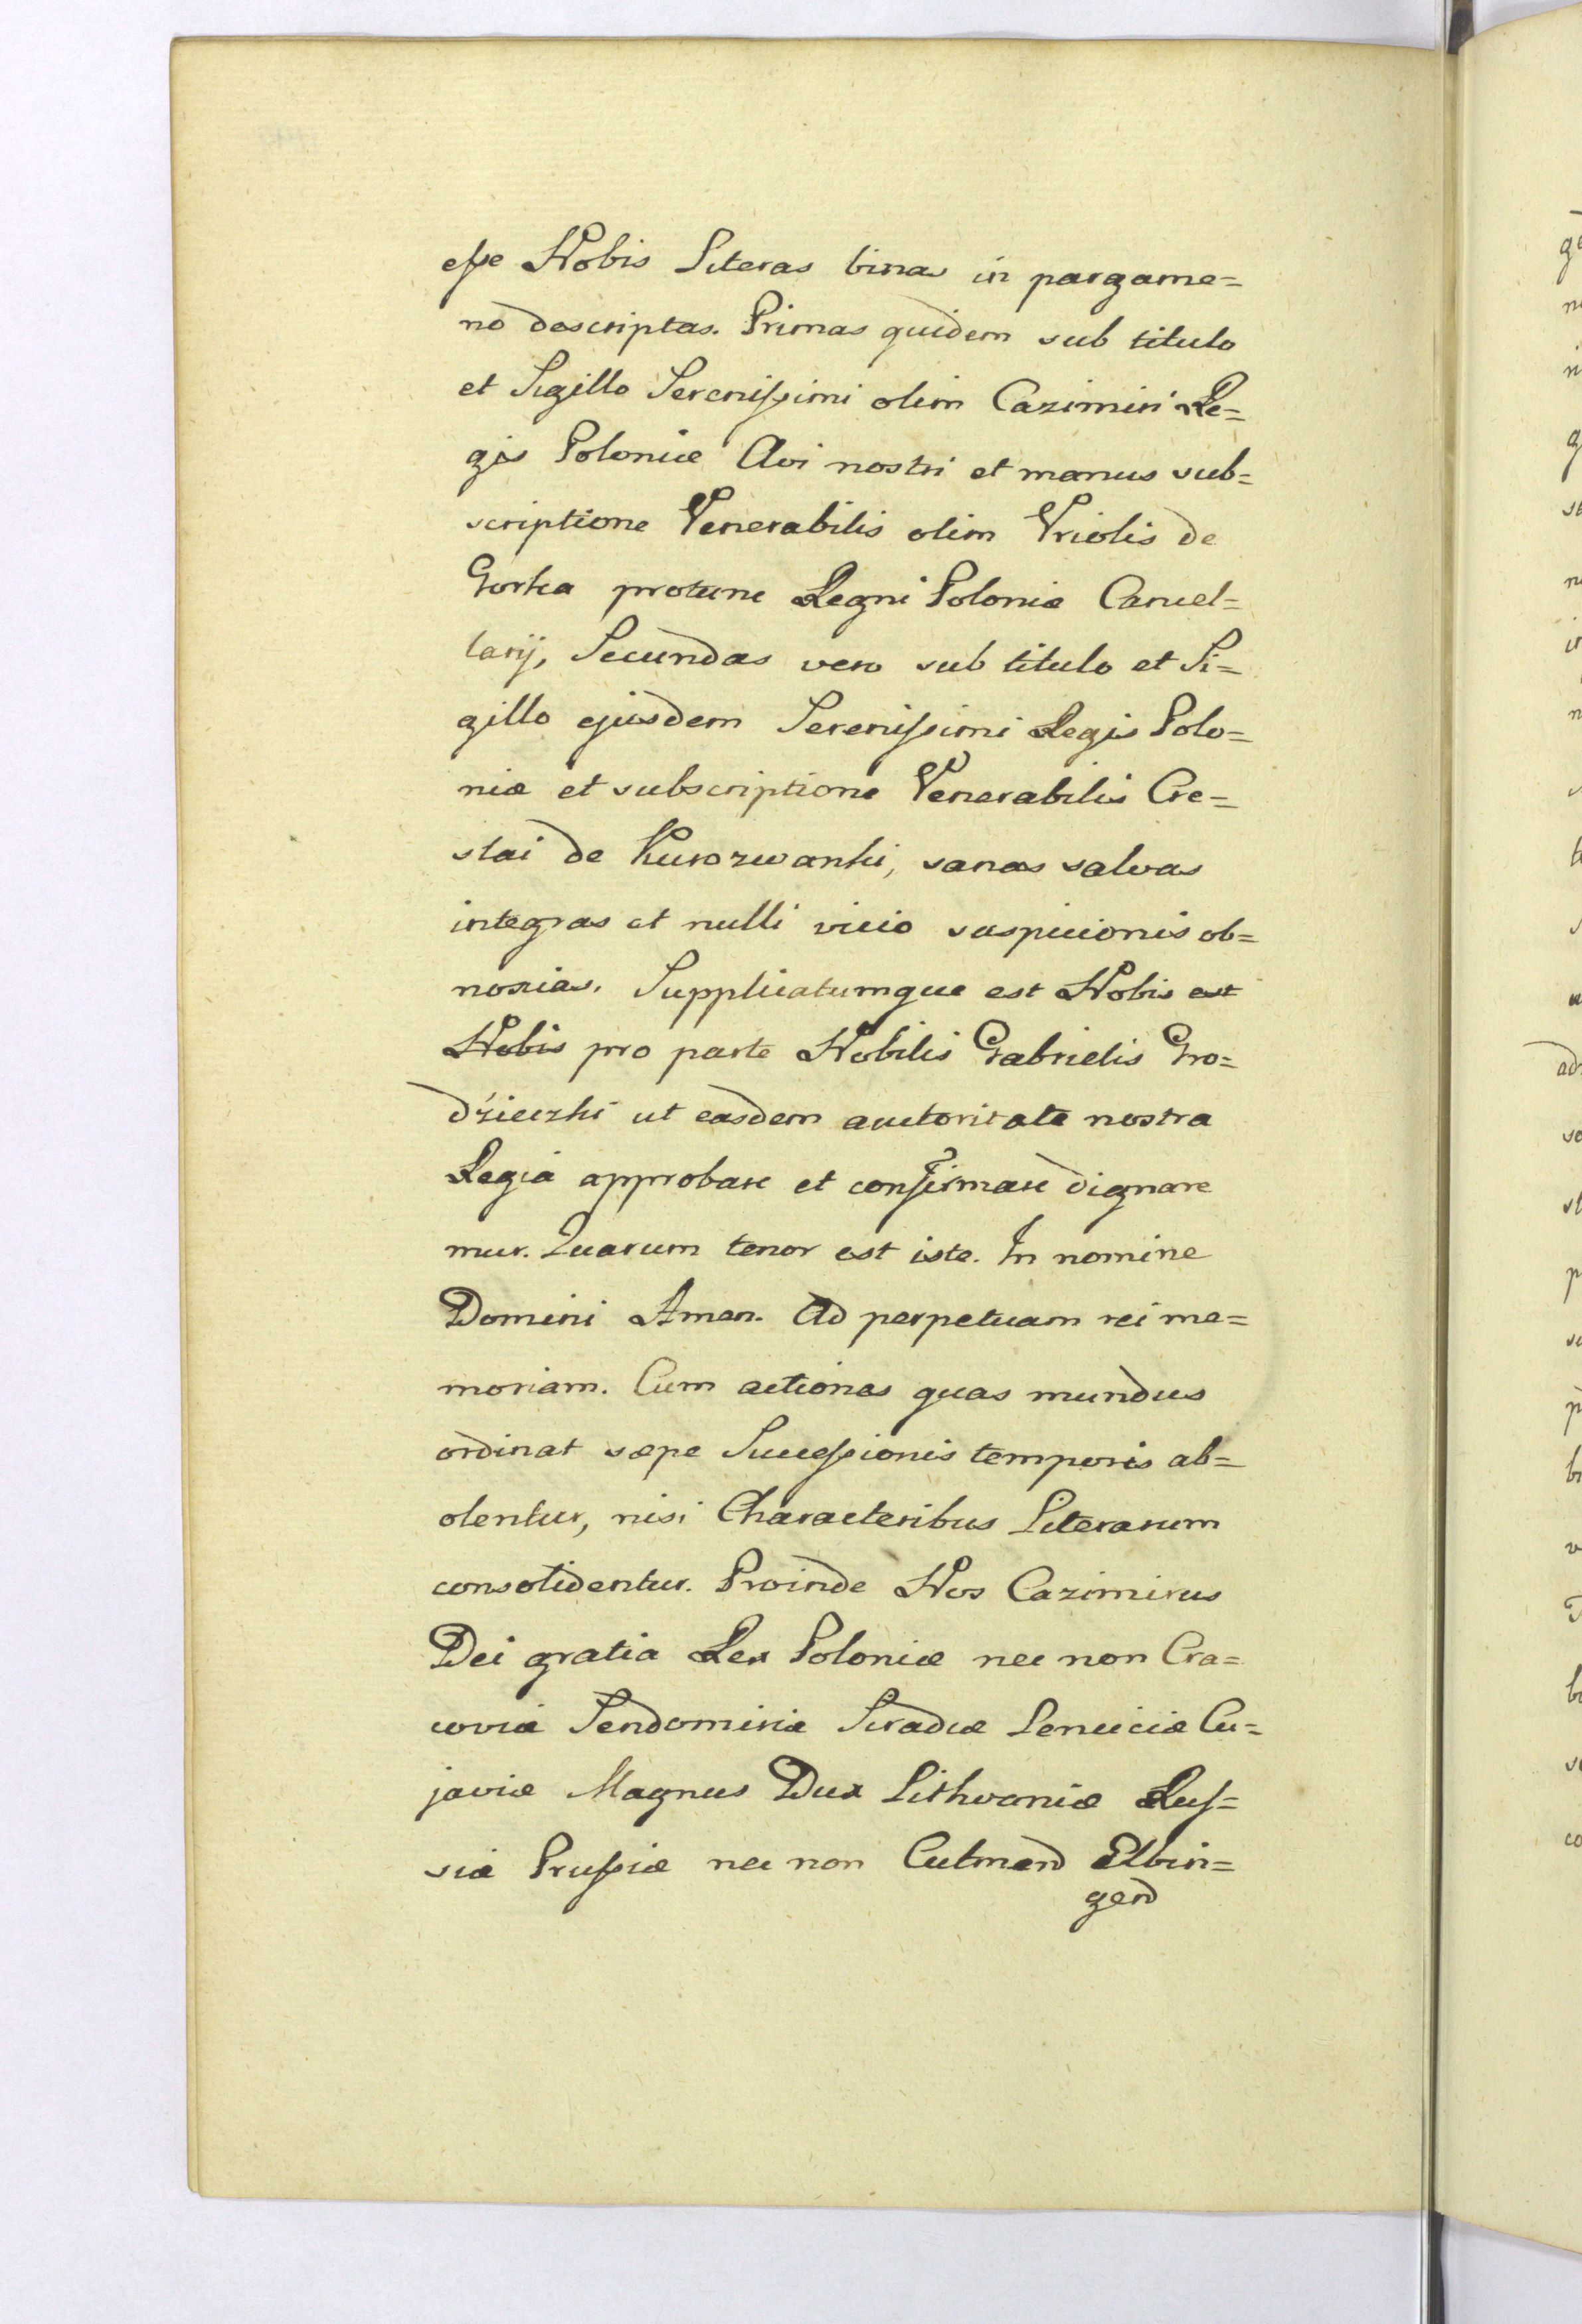 esse Nobis Literas binas in pargame=
no descriptas. Primas quidem sub titulo
et Sigillo Serenissimi olim Cazimiri Re=
gis Poloniæ Avi nostri et manus sub=
scriptione Venerabilis olim Vriolis de
Gorka protunc Regni Poloniæ Cancel=
larij, Secundas vero sub titulo et Si=
gillo ejusdem Serenissimi Regis Polo=
niæ et subscriptione Venerabilis Cre=
slai de Kurozwanki, sanas salvas
integras et nulli vicio suspicionis ob=
noxias. Supplicatumque est Nobis est
Nobis pro parte Nobilis Gabrielis Gro=
dzieczki ut easdem auctoritate nostra
Regia approbare et confirmare dignare
mur. Quarum tenor est iste. In nomine
Domini Amen. Ad perpetuam rei me=
moriam. Cum actiones quas mundus
ordinat sæpe Successionis temporis ab=
olentur, nisi Characteribus Literarum
consolidentur. Proinde Nos Cazimirus
Dei gratia Rex Poloniæ nec non Cra=
coviæ Sendomiriæ Siradiæ Lenciciæ Cu=
javiæ Magnus Dux Lithvaniæ Rus=
siæ Prussiæ nec non Culmend Elbin=
gend